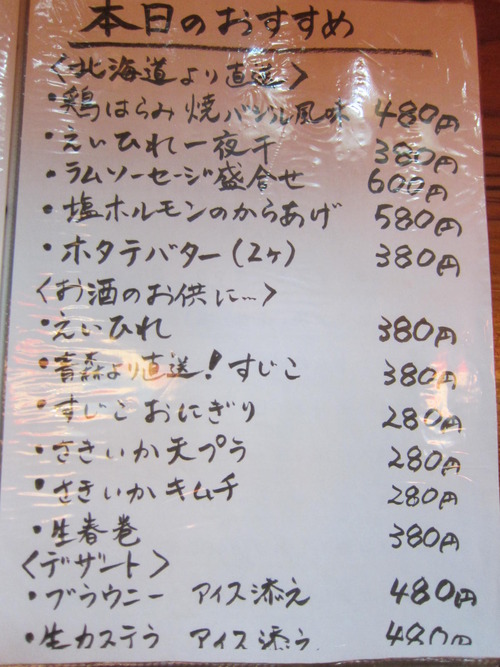 本日のおすすめ
〈北海道より直送〉
・鶏はらみ焼バジル風味 480円
・えいひれ一夜干 380円
・ラムソーセージ盛合せ 600円
・塩ホルモンのからあげ 580円
・ホタテバター(2ヶ) 380円
〈お酒のお供に…〉
・えいひれ 380円
・青森より直送!すじこ 380円
・すじこおにぎり 280円
・さきいか天プラ 280円
・さきいかキムチ 280円
・生春巻 380円
〈デザート〉
・ブラウニー アイス添え 480円
・生カステラ アイス添う 480円